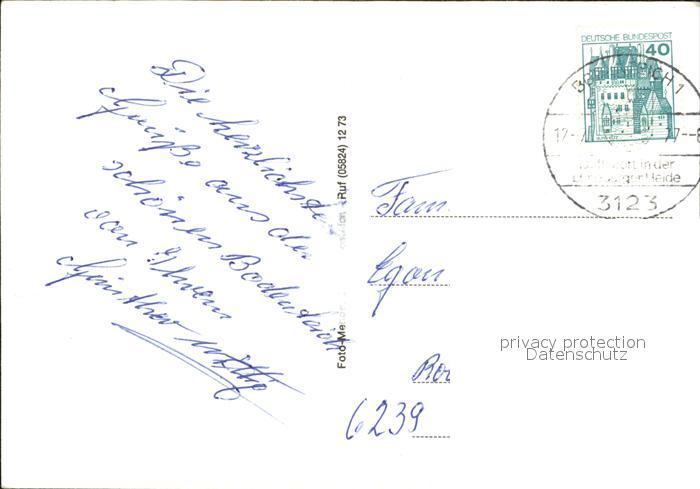 Die herzlichste
Grüße aus der
schönen Bodenteich
von Ihrem
Günther
Foto-Me
Ruf (05824) 12 73
DEUTSCHE BUNDESPOST
40
17-
77--8
in der
Heide
3123
Fam.
Egon
6239
privacy protection
Datenschutz